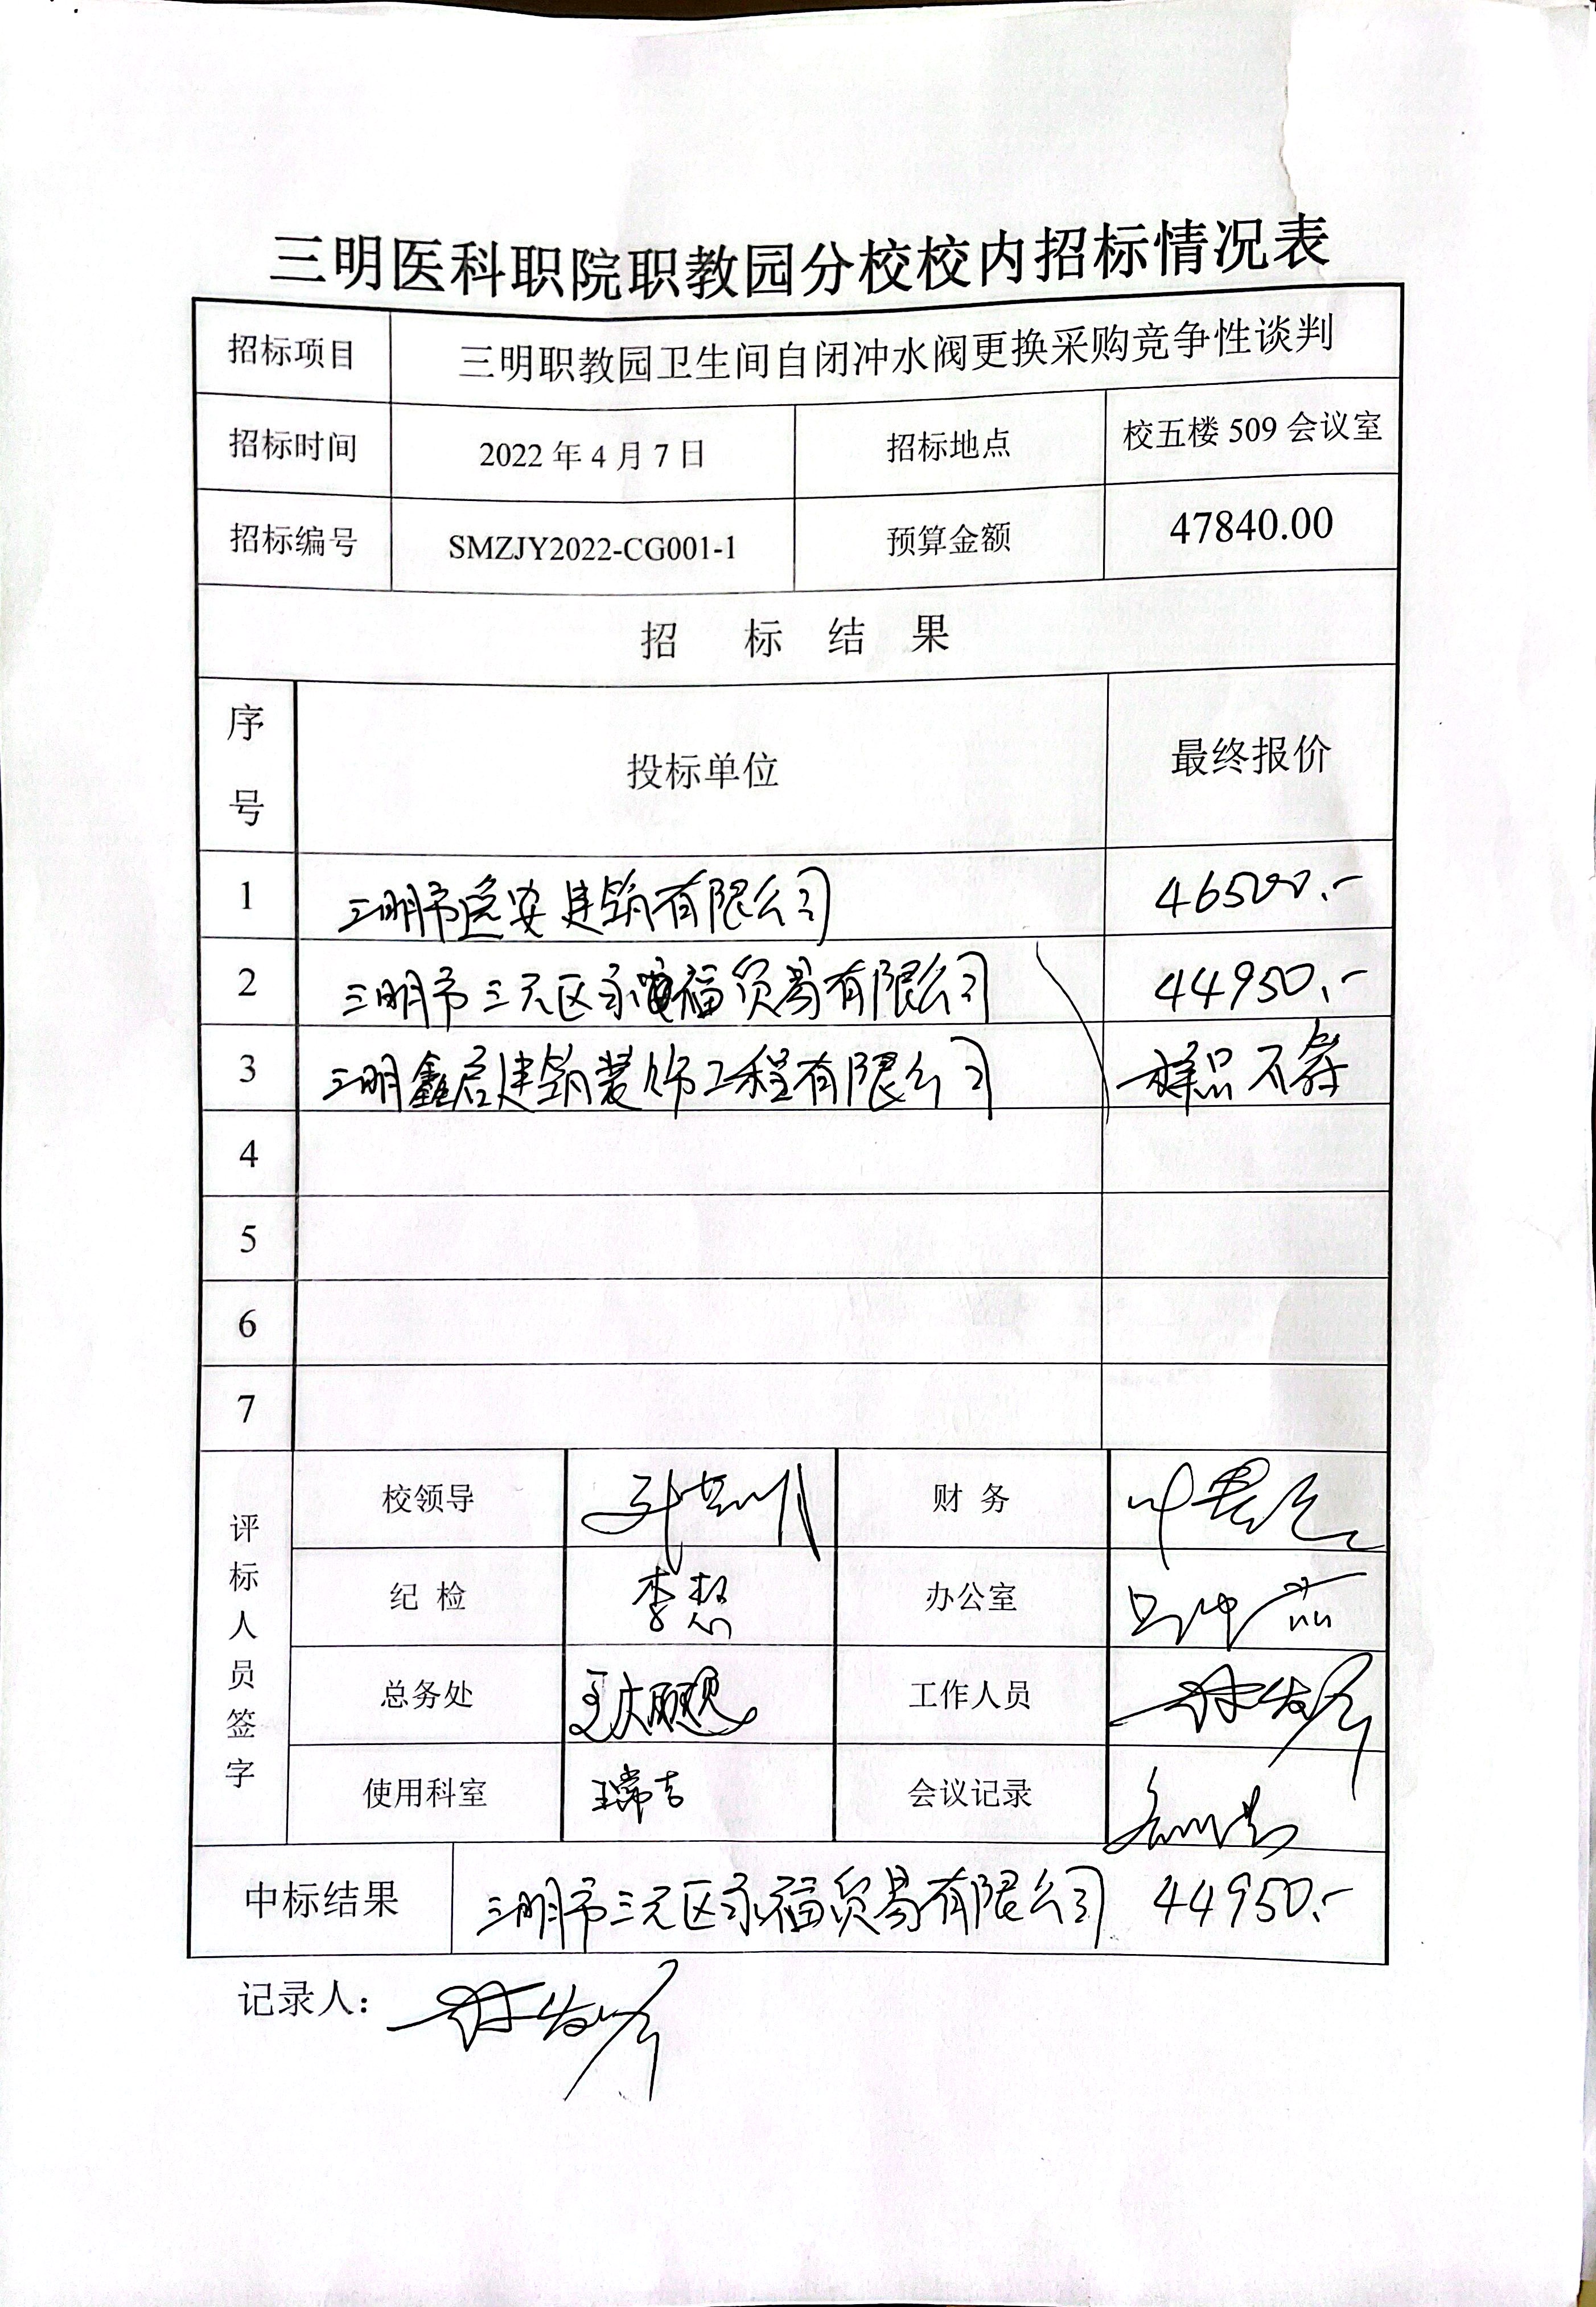 三明医科职院职教园分校校内招标情况表
招标项目 三明职教园卫生间自闭冲水阀更换采购竞争性谈判
招标时间 2022 年 4 月 7 日 招标地点 校五楼 509 会议室
招标编号 SMZJY2022-CG001-1 预算金额 47840.00
招 标 结 果
序号 投标单位 最终报价
1 三明市 安建筑有限公司 46500.-
2 三明市三元区永福贸易有限公司 44950.-
3 三明鑫君建筑装饰工程有限公司 样品不符
4
5
6
7
评标人员签字
校领导 财 务
纪 检 办公室
总务处 工作人员
使用科室 会议记录
中标结果 三明市三元区永福贸易有限公司 44950.-
记录人: